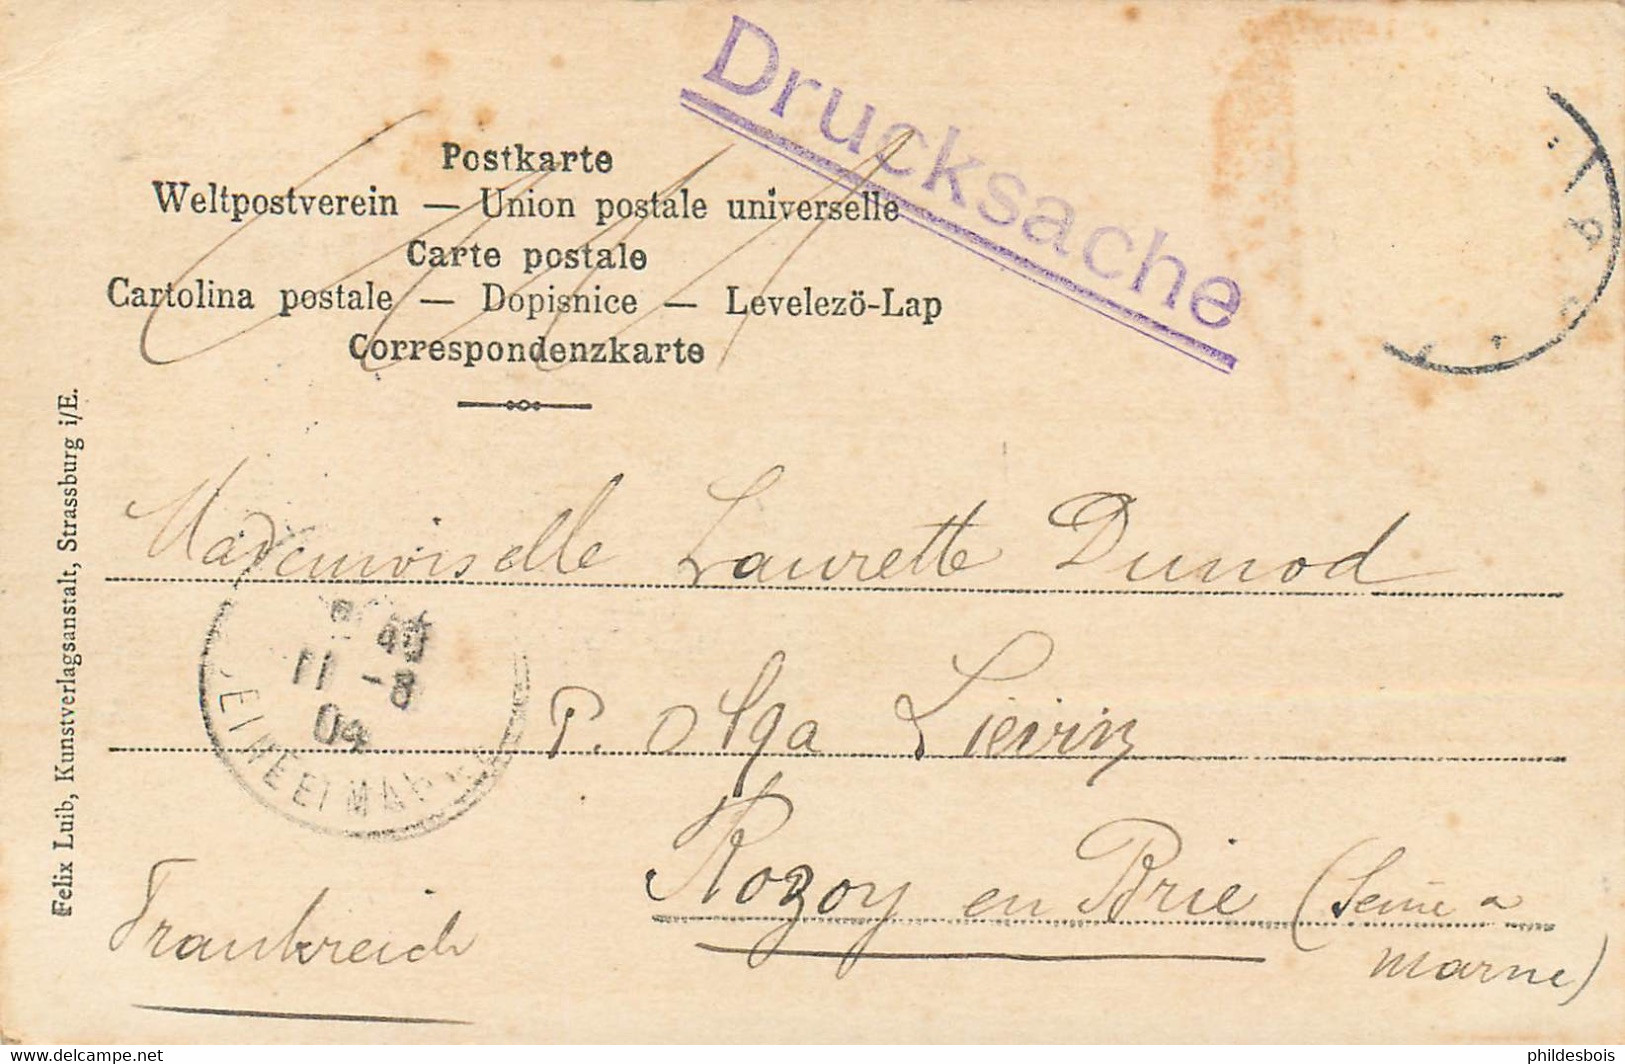 Drucksache
Postkarte
Weltpostverein — Union postale universelle
Carte postale
Cartolina postale — Dopisnice — Levelezö-Lap
Correspondenzkarte
Felix Luib, Kunstverlagsanstalt, Strassburg i/E.
Mademoiselle Laurette Dunod
40
11 -8
04
SEINE ET MARNE
P. Olga Liévin
Rozoy en Brie (Seine &
Marne)
Frankreich
Delcampe.net
phildesbois